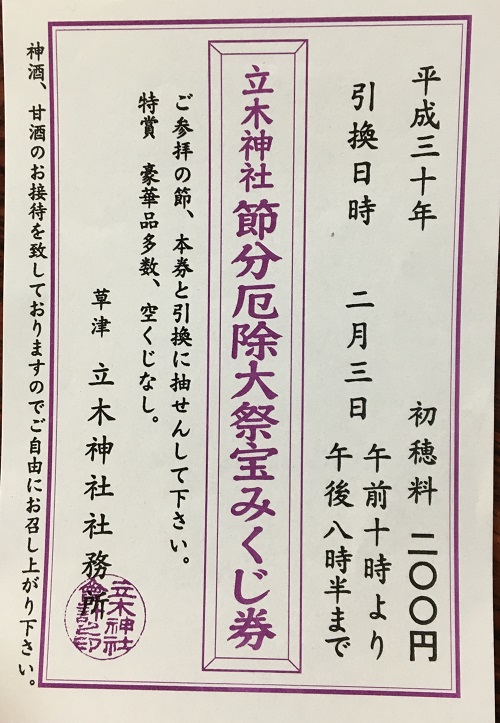 平成三十年 初穂料 二〇〇円
引換日時 二月三日 午前十時より
午後八時半まで
立木神社 節分厄除大祭宝みくじ券
ご参拝の節、本券と引換に抽せんして下さい。
特賞 豪華品多数、空くじなし。
草津 立木神社社務所
立木神社
神酒、甘酒のお接待を致しておりますのでご自由にお召し上がり下さい。